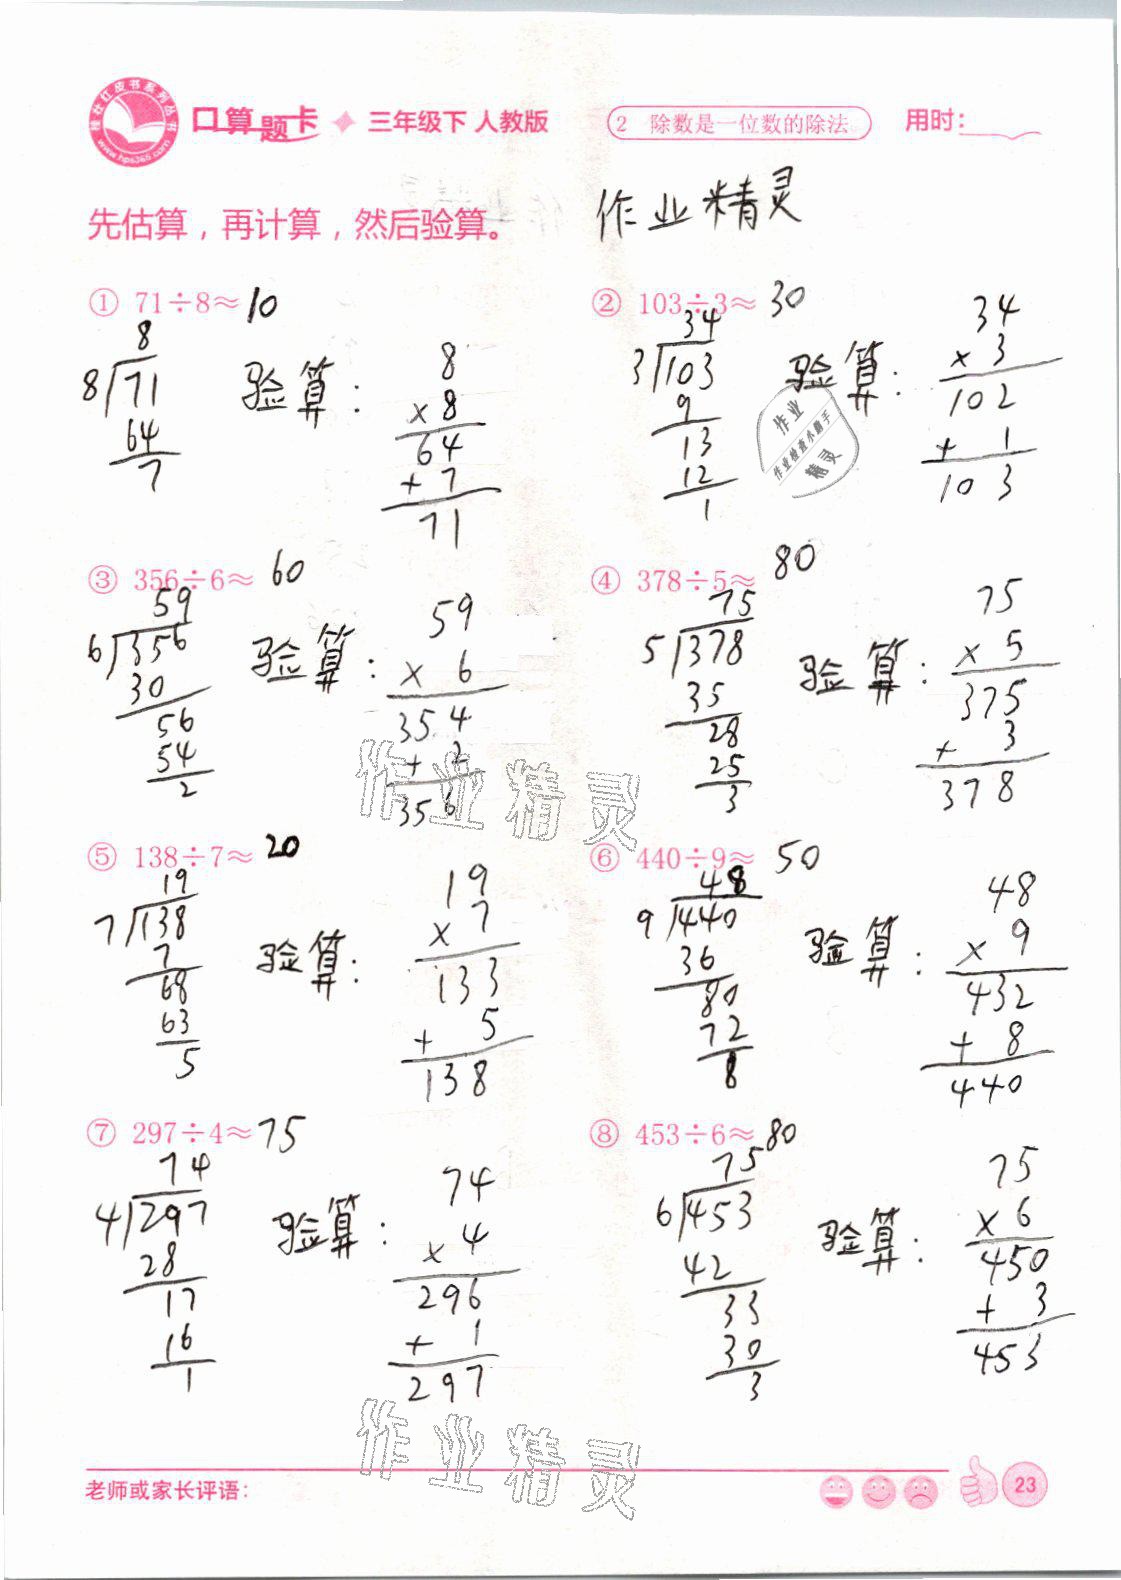 桃红红皮书系列丛书
www.hps365.com
口算题卡 三年级下 人教版
2 除数是一位数的除法
用时：
先估算，再计算，然后验算。
作业精灵
① 71÷8≈10
8
8 71
64
7
验算：
8
×8
64
+7
71
② 103÷3≈ 30
34
3 103
9
13
12
1
验算：
34
×3
102
+ 1
103
作业
作业检查小助手
精灵
③ 356÷6≈ 60
59
6 356
30
56
54
2
验算：
59
× 6
354
+ 2
356
④ 378÷5≈ 80
75
5 378
35
28
25
3
验算：
75
× 5
375
+ 3
378
作业精灵
⑤ 138÷7≈ 20
19
7 138
7
68
63
5
验算：
19
× 7
133
+ 5
138
⑥ 440÷9≈ 50
48
9 440
36
80
72
8
验算：
48
× 9
432
+ 8
440
⑦ 297÷4≈75
74
4 297
28
17
16
1
验算：
74
× 4
296
+ 1
297
⑧ 453÷6≈80
75
6 453
42
33
30
3
验算：
75
×6
450
+ 3
453
作业精灵
老师或家长评语：
23